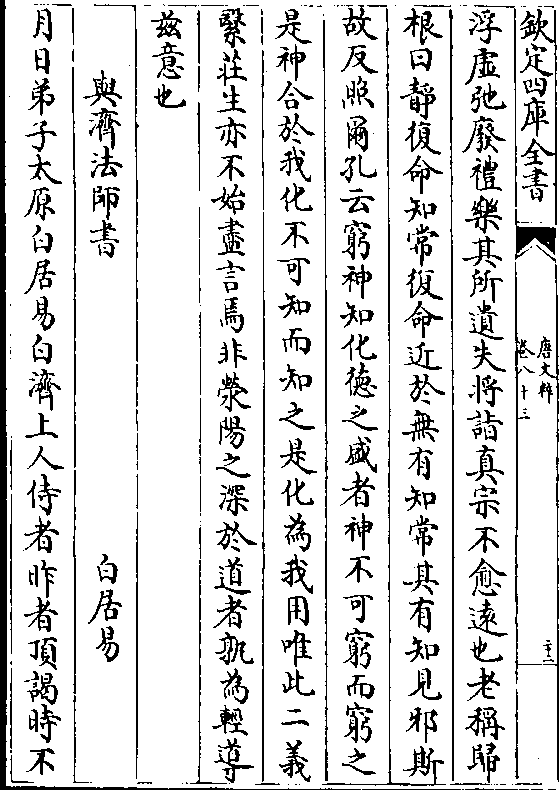 欽定四庫全書
唐文粹
卷八十三
二十二
浮虛弛廢禮樂其所遺失將詣真宗不愈遠也老稱歸
根曰靜復命知常復命近於無有知常其有知見邪斯
故反照爾孔云窮神知化德之盛者神不可窮而窮之
是神合於我化不可知而知之是化為我用唯此二義
繄莊生亦不始盡言焉非滎陽之深於道者孰為輕導
茲意也
與濟法師書 白居易
月日弟子太原白居易白濟上人侍者昨者頂謁時不